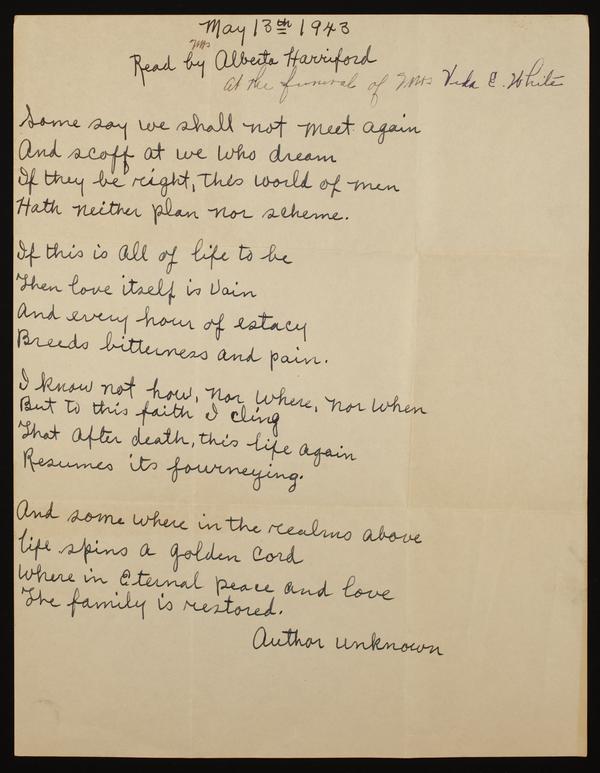 May 13th 1943
Mrs
Read by Alberta Harriford
at the funeral of Mrs Veda C. White
Some say we shall not meet again
And scoff at we who dream
If they be right, this world of men
Hath neither plan nor scheme.
If this is all of life to be
Then love itself is vain
And every hour of estacy
Breeds bitterness and pain.
I know not how, nor where, nor when
But to this faith I cling
That after death, this life again
Resumes its journeying.
And some where in the realms above
life spins a golden cord
Where in Eternal peace and love
The family is restored.
Author unknown